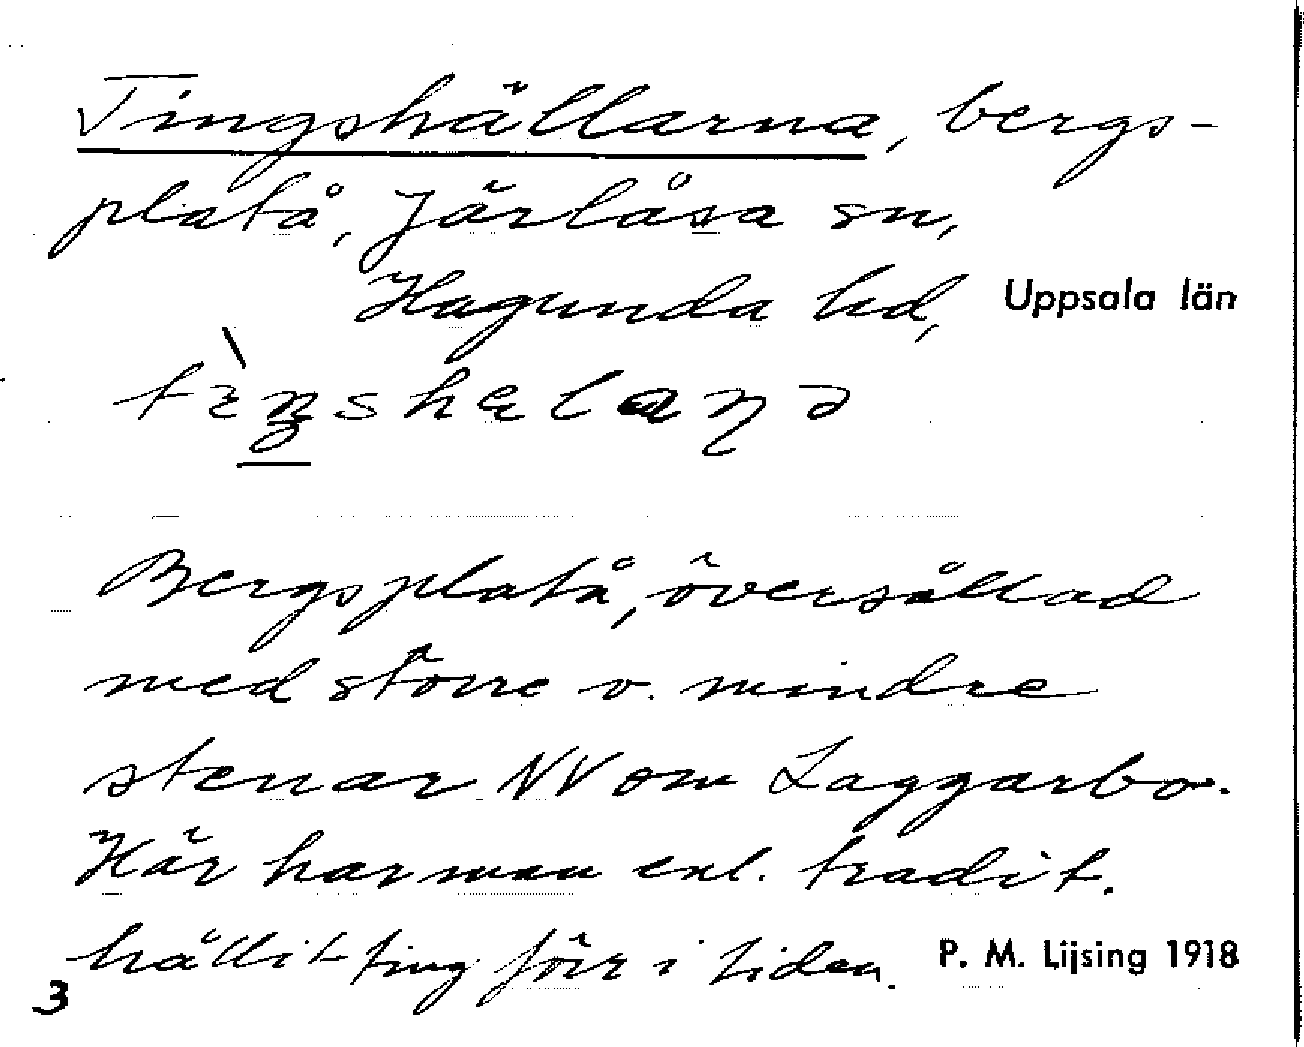 Tingshällarna, bergs-
platå, Järlåsa sn,
Hagunda hd, Uppsala län
Bergsplatå, översållad
med större o. mindre
stenar NV om Laggarbo.
Här har man enl. tradit.
hållit ting förr i tiden.
P. M. Lijsing 1918
3